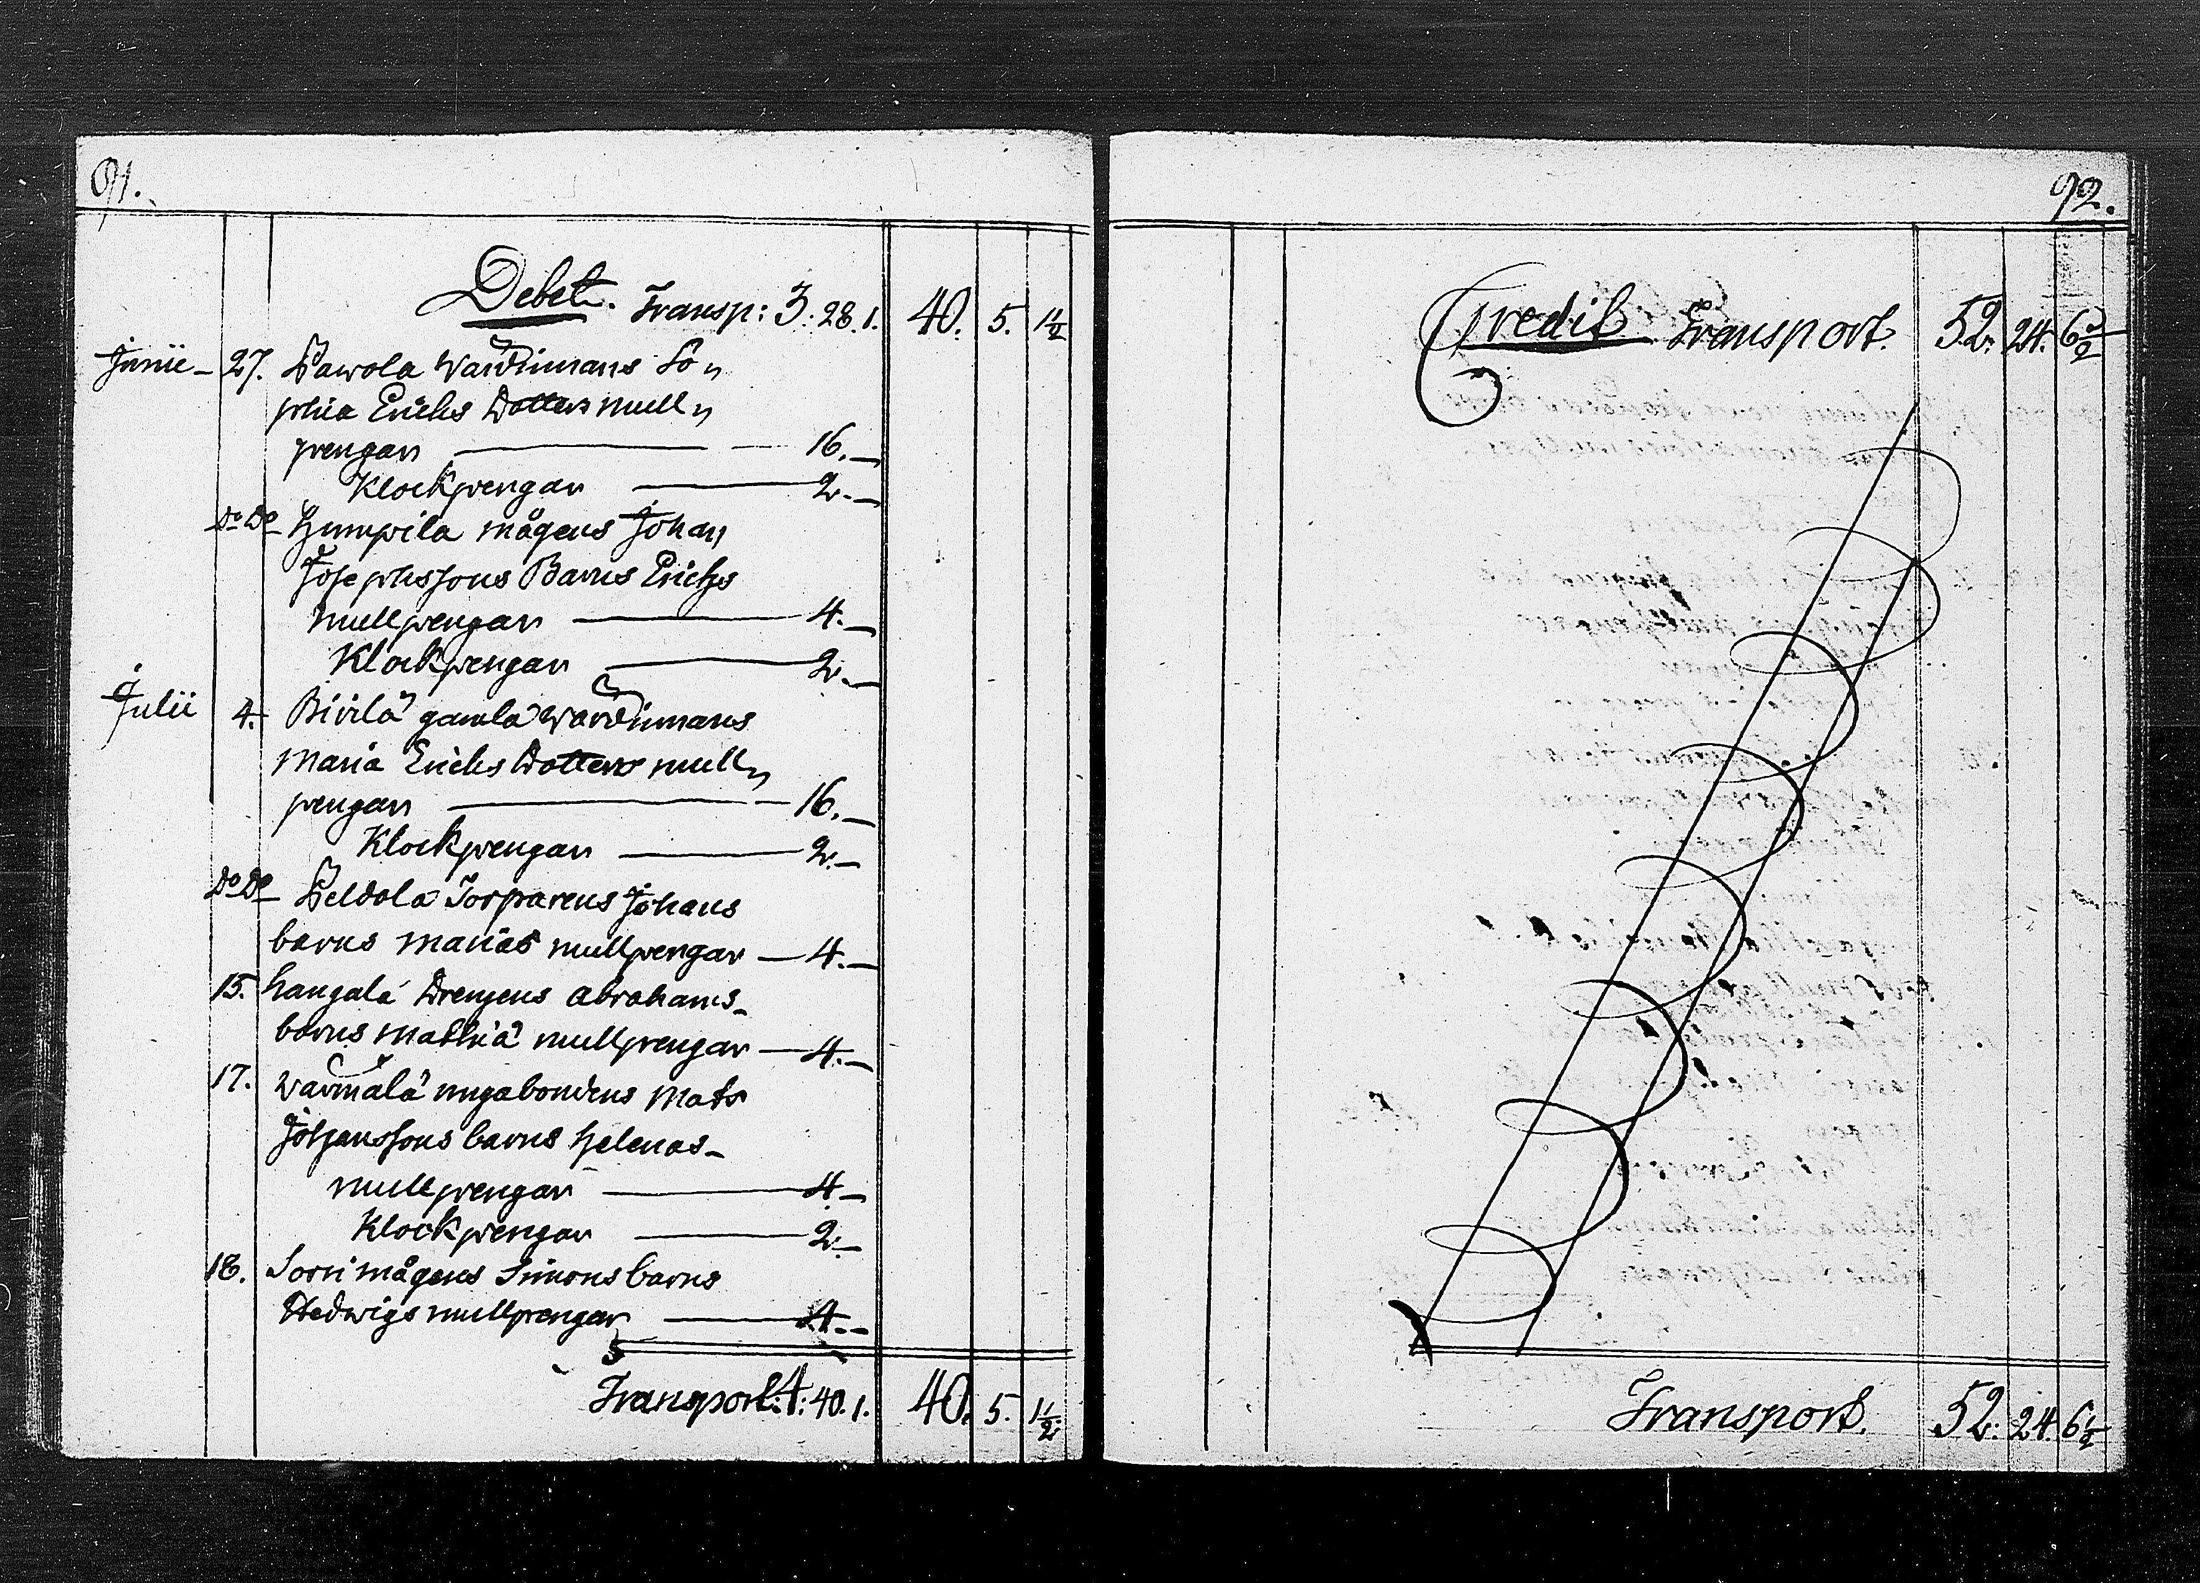 91.
Debet. Transp: 3. 28. 1. 40. 5. 1 1/2
Junii - 27. Pawola Wardinmans So„
phia Erichs Dotters mull„
pengar — 16. —
Klockpengar — 2. —
Do Do Humpila mågens Johan
Josephssons Barns Erichs
mullpengar — 4. —
Klockpengar — 2. —
Julii 4. gamla Wardinmans
Maria Erichs Dotters mull„
pengar — 16. —
Klockpengar — 2. —
Do Do Peldola Torparens Johans
barns Marias mullpengar — 4. —
15. Hangala Drengens Abrahams
barns Mathiä mullpengar — 4. —
17. Warmala Mats
Johanssons barns Helenas
mullpengar — 4 —
Klockpengar — 2. —
18. Sorri mågens Simons barns
Hedwigs mullpengar — 4. —
Transport: 4: 40. 1. 40. 5. 1 1/2
92.
Credit Transport. 52. 24. 6 1/2
Transport. 52. 24. 6 1/2